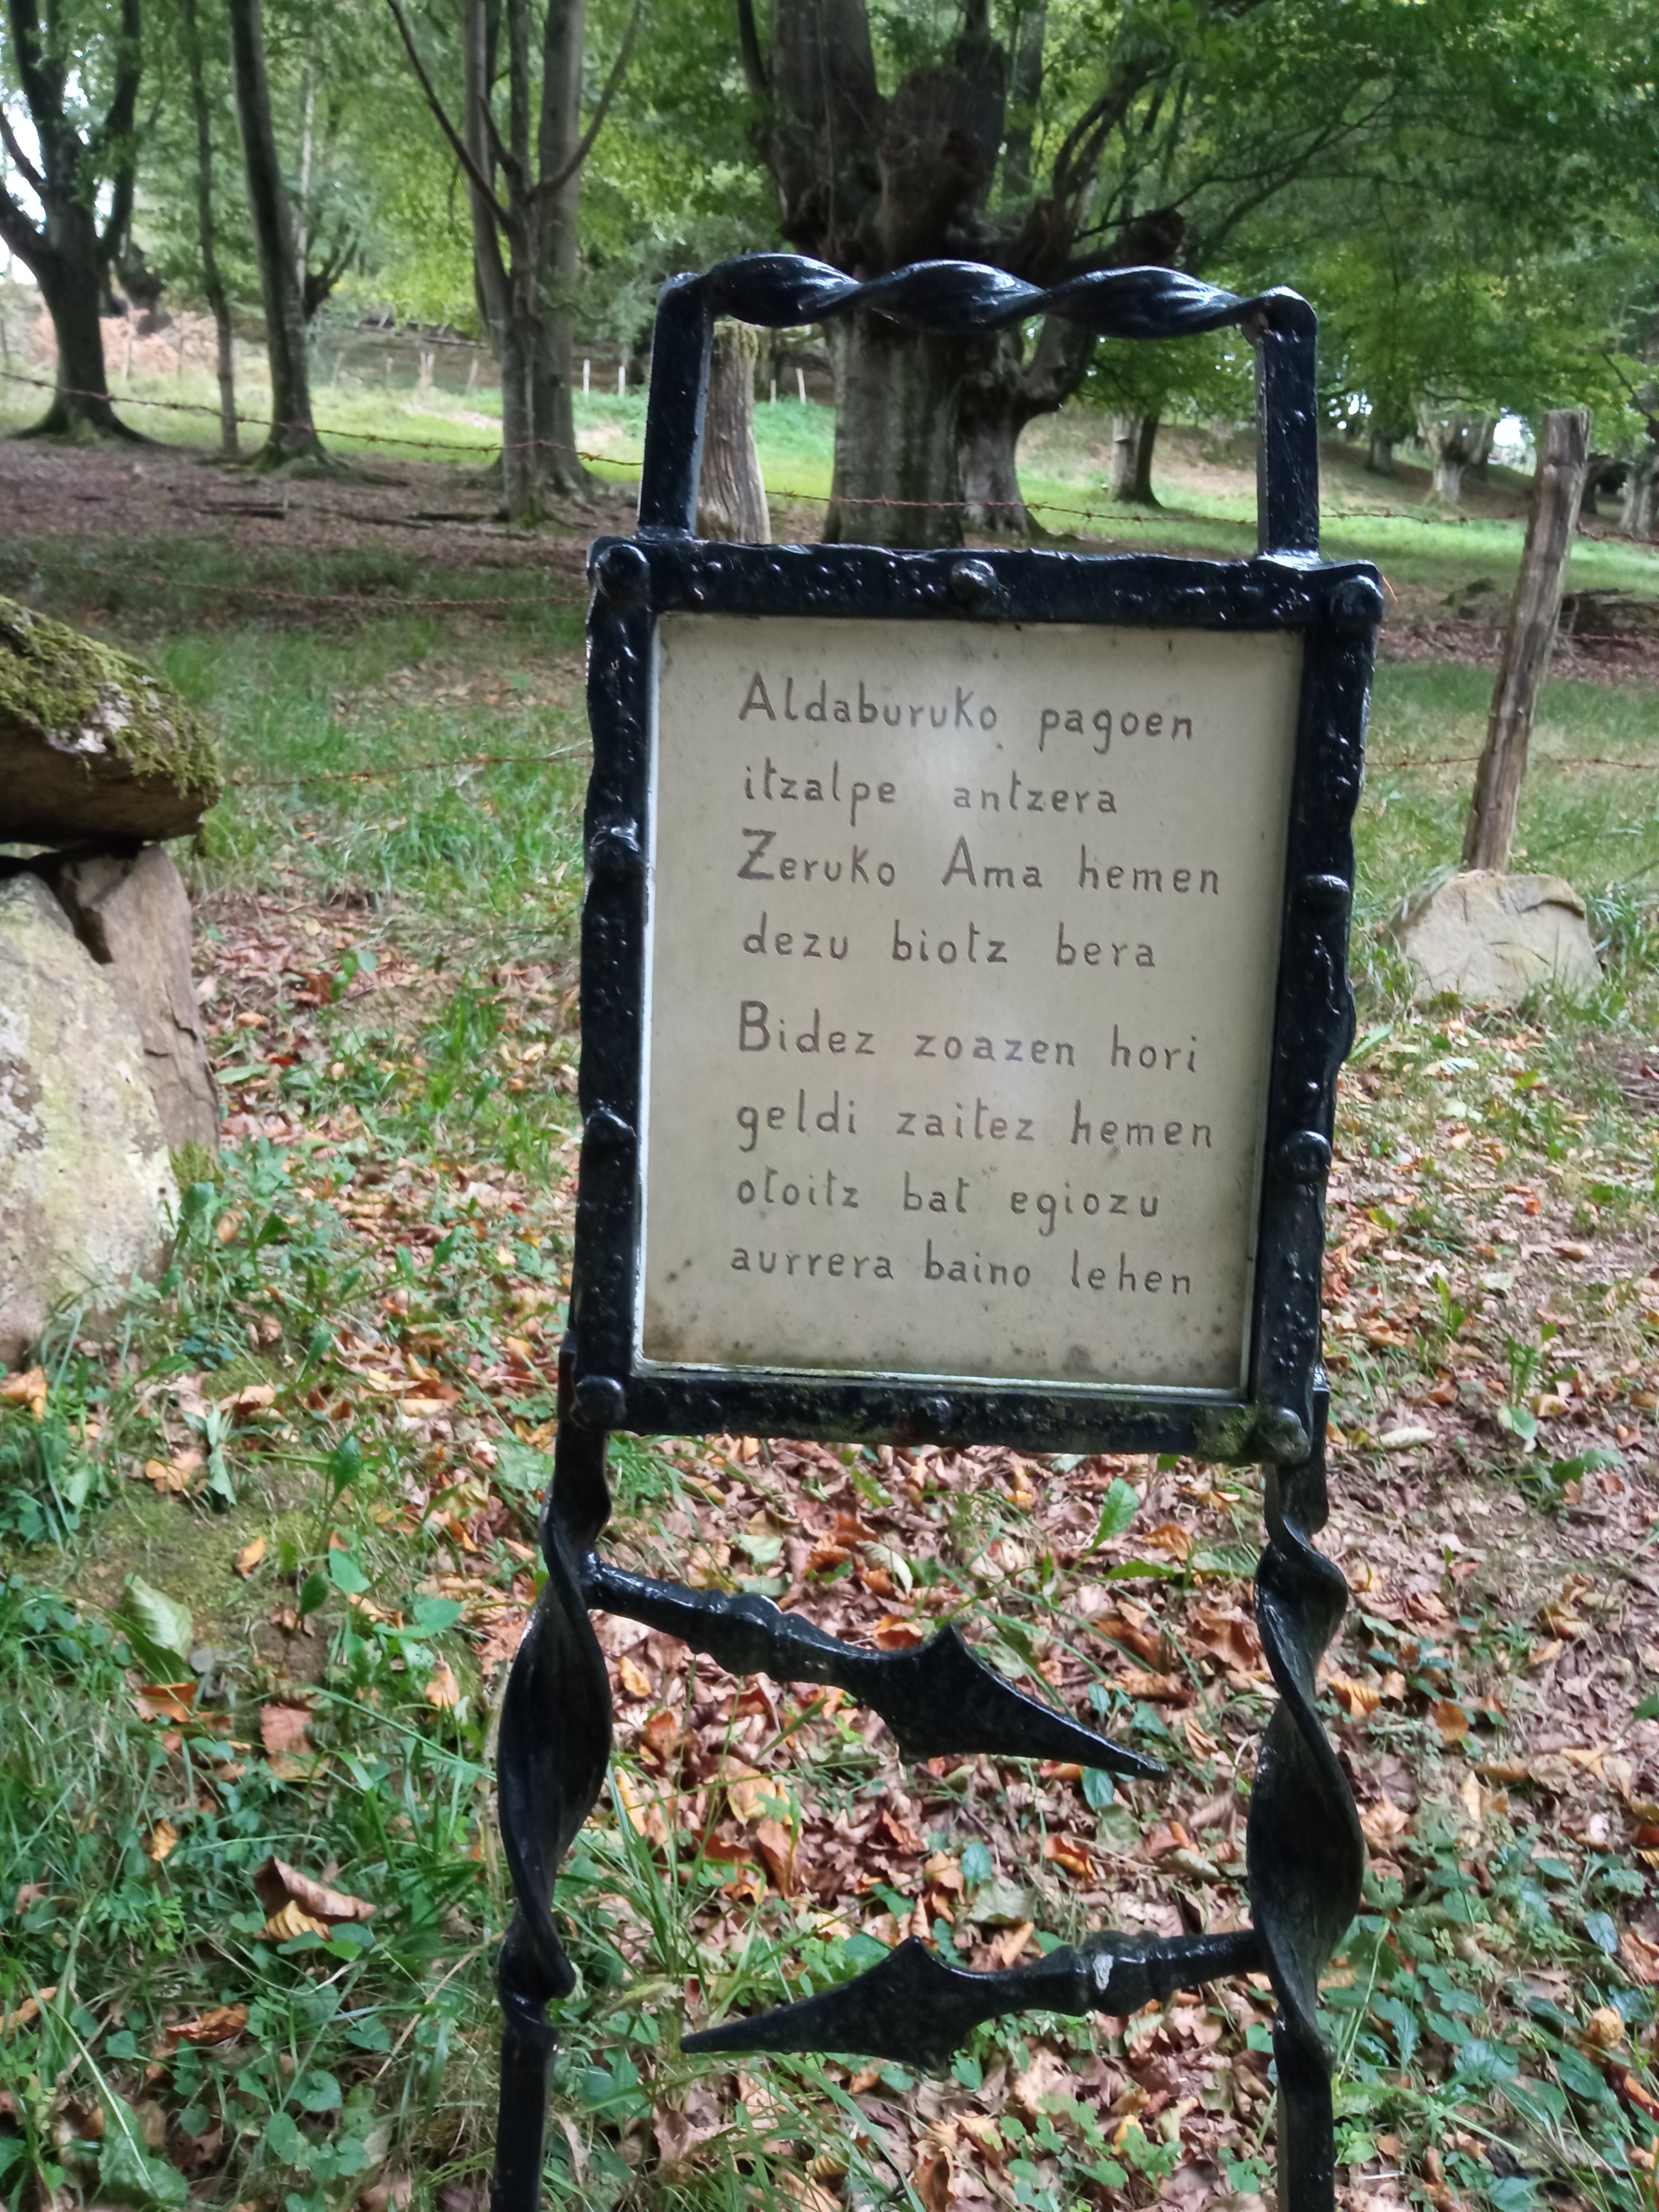 Aldaburuko pagoen
itzalpe antzera
Zeruko Ama hemen
dezu biotz bera
Bidez zoazen hori
geldi zaitez hemen
otoitz bat egiozu
aurrera baino lehen